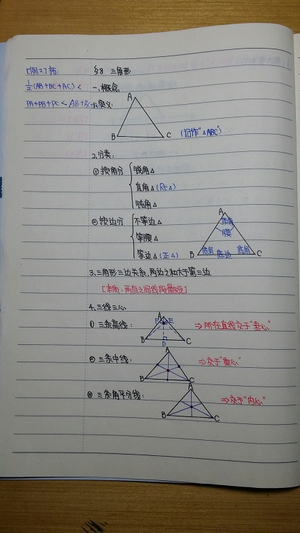 §8 三角形
½(AB+BC+AC) <
PA+PB+PC < AB+
一、概念
1.定义
A
B
C
(记作"△ABC")
2.分类:
①按角分
锐角△
直角△(Rt△)
钝角△
②按边分
不等边△
等腰△
等边△(正△)
A
顶角
腰
底角
底边
底角
B
C
3.三角形三边关系:两边之和大于第三边
[本质:两点之间线段最短]
4.三线三心
①三条高线:
A
B
C
D
⇒所在直线交于"垂心"
②三条中线:
A
B
C
⇒交于"重心"
③三条角平分线:
A
B
C
⇒交于"内心"